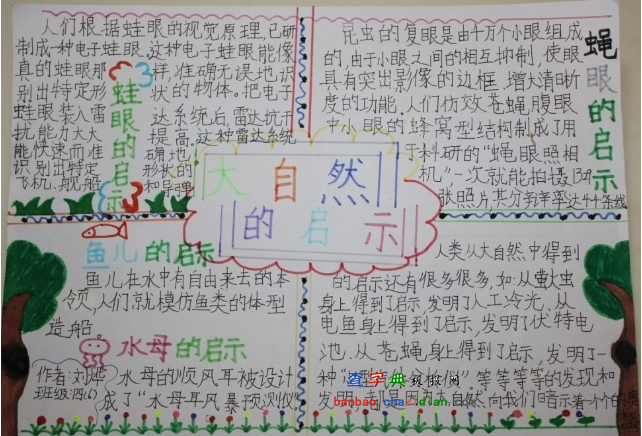 大自然
的启示
蛙眼的启示
人们根据蛙眼的视觉原理,已研
制成一种电子蛙眼.这种电子蛙眼能像
真的蛙眼那样,准确无误地识
别出特定形状的物体。把电子
蛙眼装入雷达系统后,雷达抗干
扰能力大大提高.这种雷达系统
能快速而准确地
识别出特定形状的
飞机、舰船和导弹
蝇眼的启示
昆虫的复眼是由千万个小眼组成
的,由于小眼之间的相互抑制,使眼
具有突出影像的边框,增大清晰
度的功能.人们仿效苍蝇腹眼
中小眼的蜂窝型结构制成了用
于科研的“蝇眼照相
机”一次就能拍摄
张照片,其分
鱼儿的启示
鱼儿在水中有自由来去的本
领,人们就模仿鱼类的体型
造船
水母的启示
水母的顺风耳被设计
成了“水母耳风暴预测仪”
作者:刘
班级:四
人类从大自然中得到
的启示还有很多很多,如:从萤火虫
身上得到了启示,发明了人工冷光,从
电鱼身上得到了启示,发明了伏特电
池.从苍蝇身上得到了启示,发明了一
种“
等等等等的发现和
发明,都是因为大自然向我们暗示着一个个的
查字典